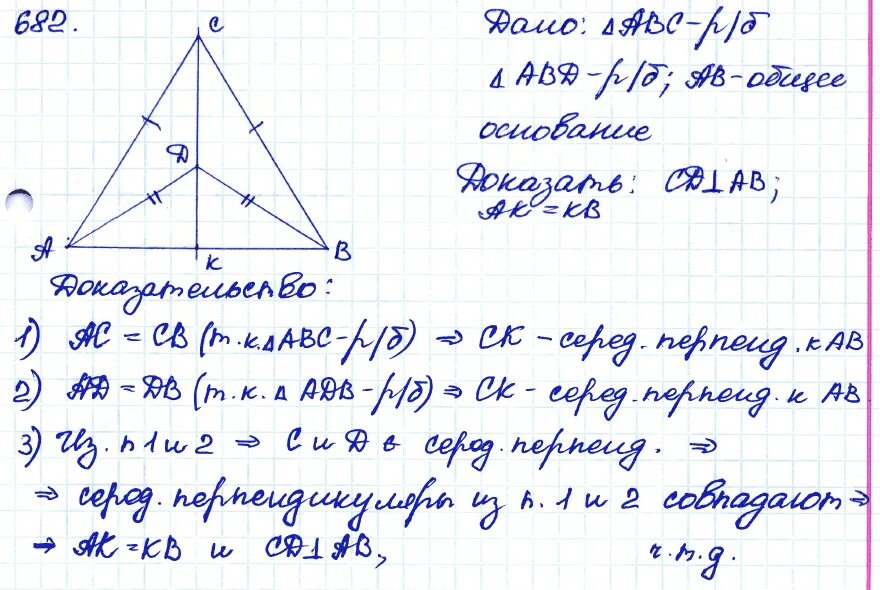 682.
C
Д
А
К
В
Дано: △ABC-р/б
△ABД-р/б; AB-общее
основание
Доказать: СД⊥AB;
AK=KB
Доказательство:
1) AC = CB (т.к.△ABC-р/б) ⇒ CK - серед.перпенд.к AB
2) AД = ДB (т.к.△ AДB-р/б) ⇒ CK - серед.перпенд.к AB
3) Из.п 1 и 2 ⇒ C и Д ∈ серод.перпенд. ⇒
⇒ серод.перпендикуляры из п. 1 и 2 совпадают ⇒
→ AK=KB и CД⊥AB, ч.т.д.